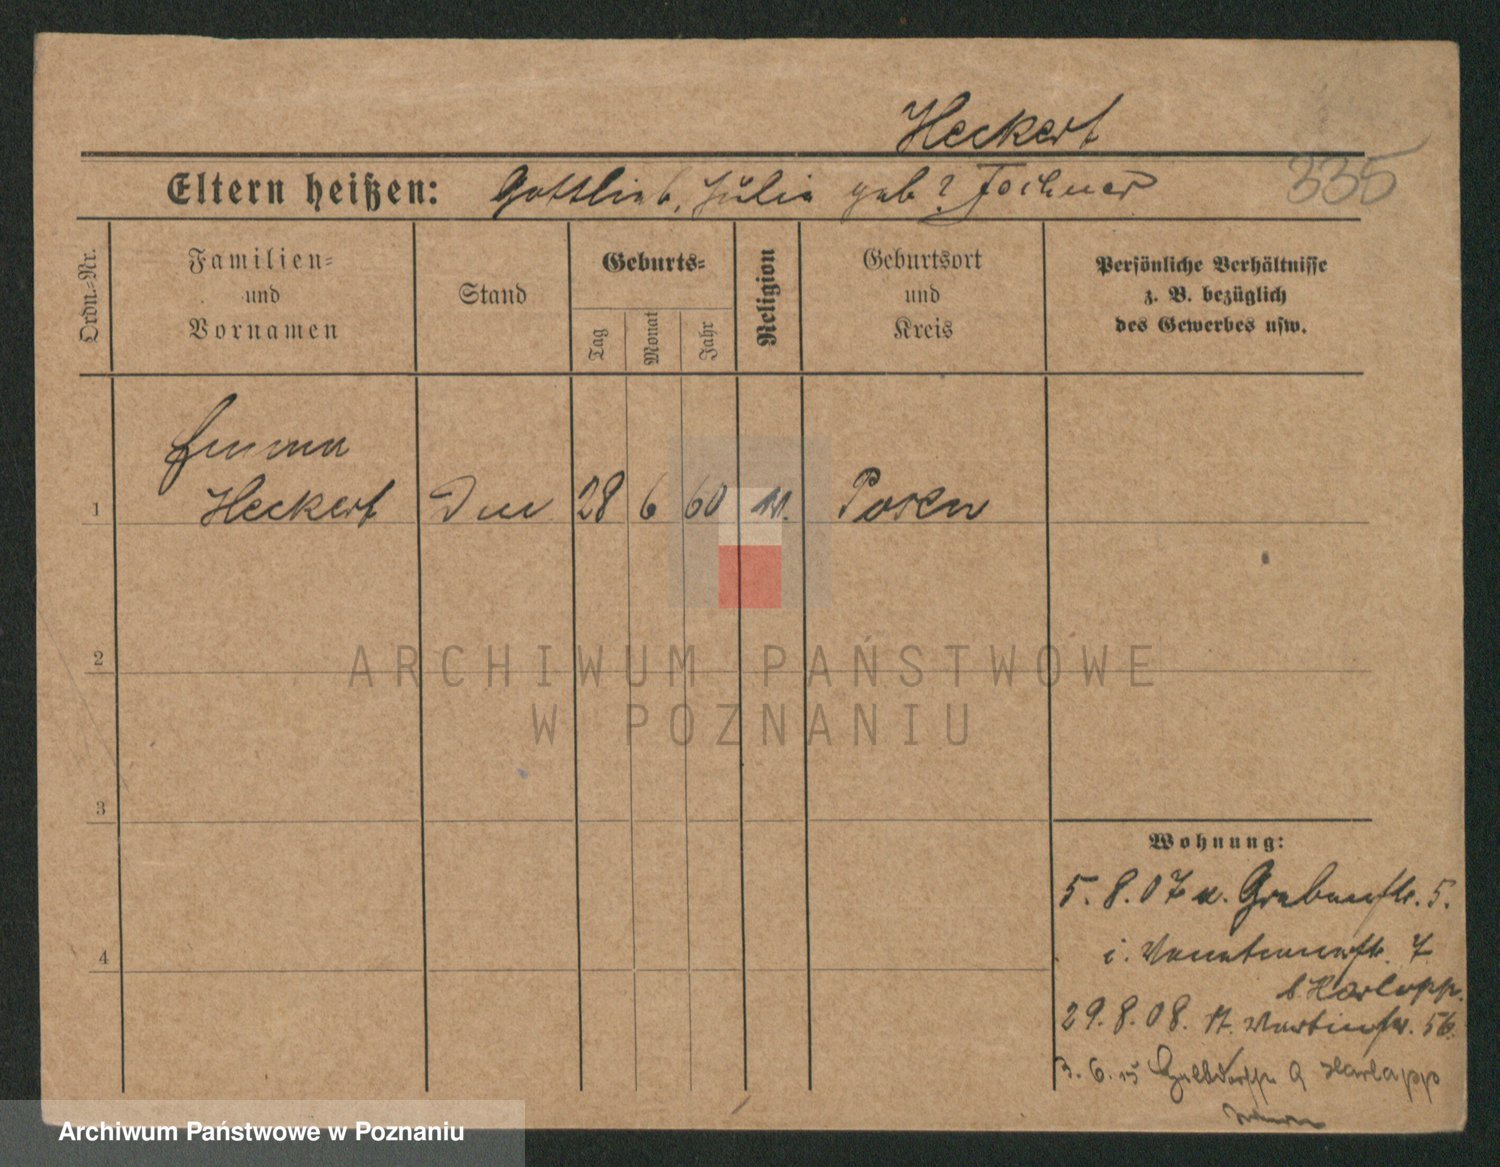 Heckert
335
Eltern heißen: Gottlieb, Julie geb?
Ordn.-Nr.
Familien-
und
Vornamen
Stand
Geburts-
Tag
Monat
Jahr
Religion
Geburtsort
und
Kreis
Persönliche Verhältnisse
z. B. bezüglich
des Gewerbes usw.
Emma
1 Heckert 28 6 60 Posen
2
ARCHIWUM PAŃSTWOWE
W POZNANIU
3
Wohnung:
5. 8. 07 Grabenstr. 5.
4
i. 7
b. Harlapp.
29. 8. 08. St. Martinstr. 56.
3. 6. 15 Harlapp
Archiwum Państwowe w Poznaniu